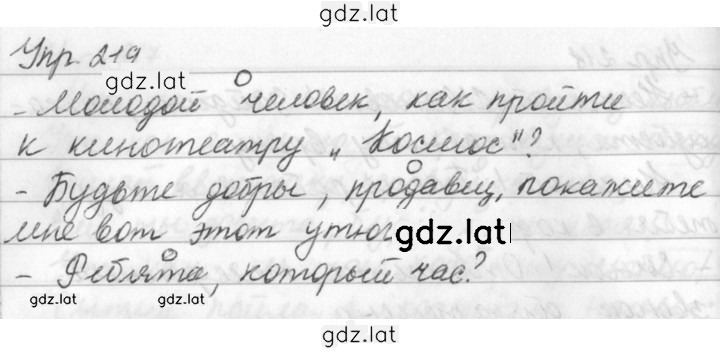 gdz.lat
Упр. 219
gdz.lat
- Молодой человек, как пройти
к кинотеатру „Космос"?
- Будьте добры, продавец, покажите
мне вот этот утюг
gdz.lat
- Ребята, который час?
gdz.lat gdz.lat
gdz.lat